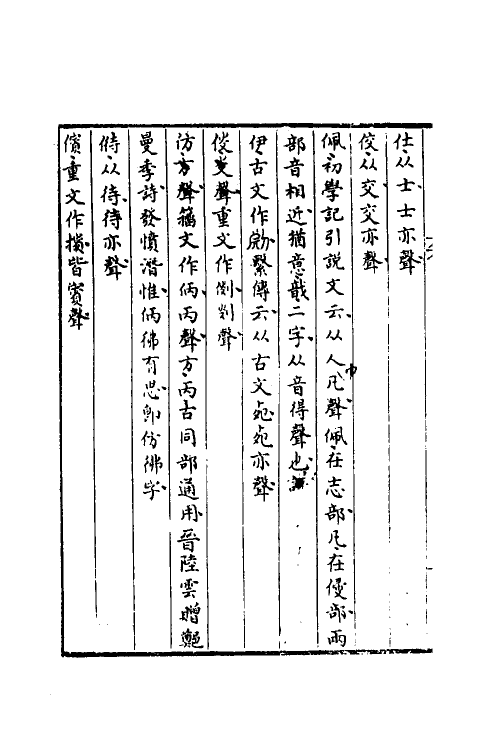 仕从士士亦聲
佼从交交亦聲
佩初學記引説文云从人凡巾聲佩在志部凡在侵部兩
部音相近猶意戠二字从音得聲也
伊古文作𠈼繫傳云从古文死死亦聲
重文作𠊬𠛱聲
仿方聲籀文作㑂丙聲方丙古同部通用晉陸雲贈鄭
曼季詩發憤潛惟㑂彿有思卽仿彿字
偫从待待亦聲
儐重文作擯皆賓聲